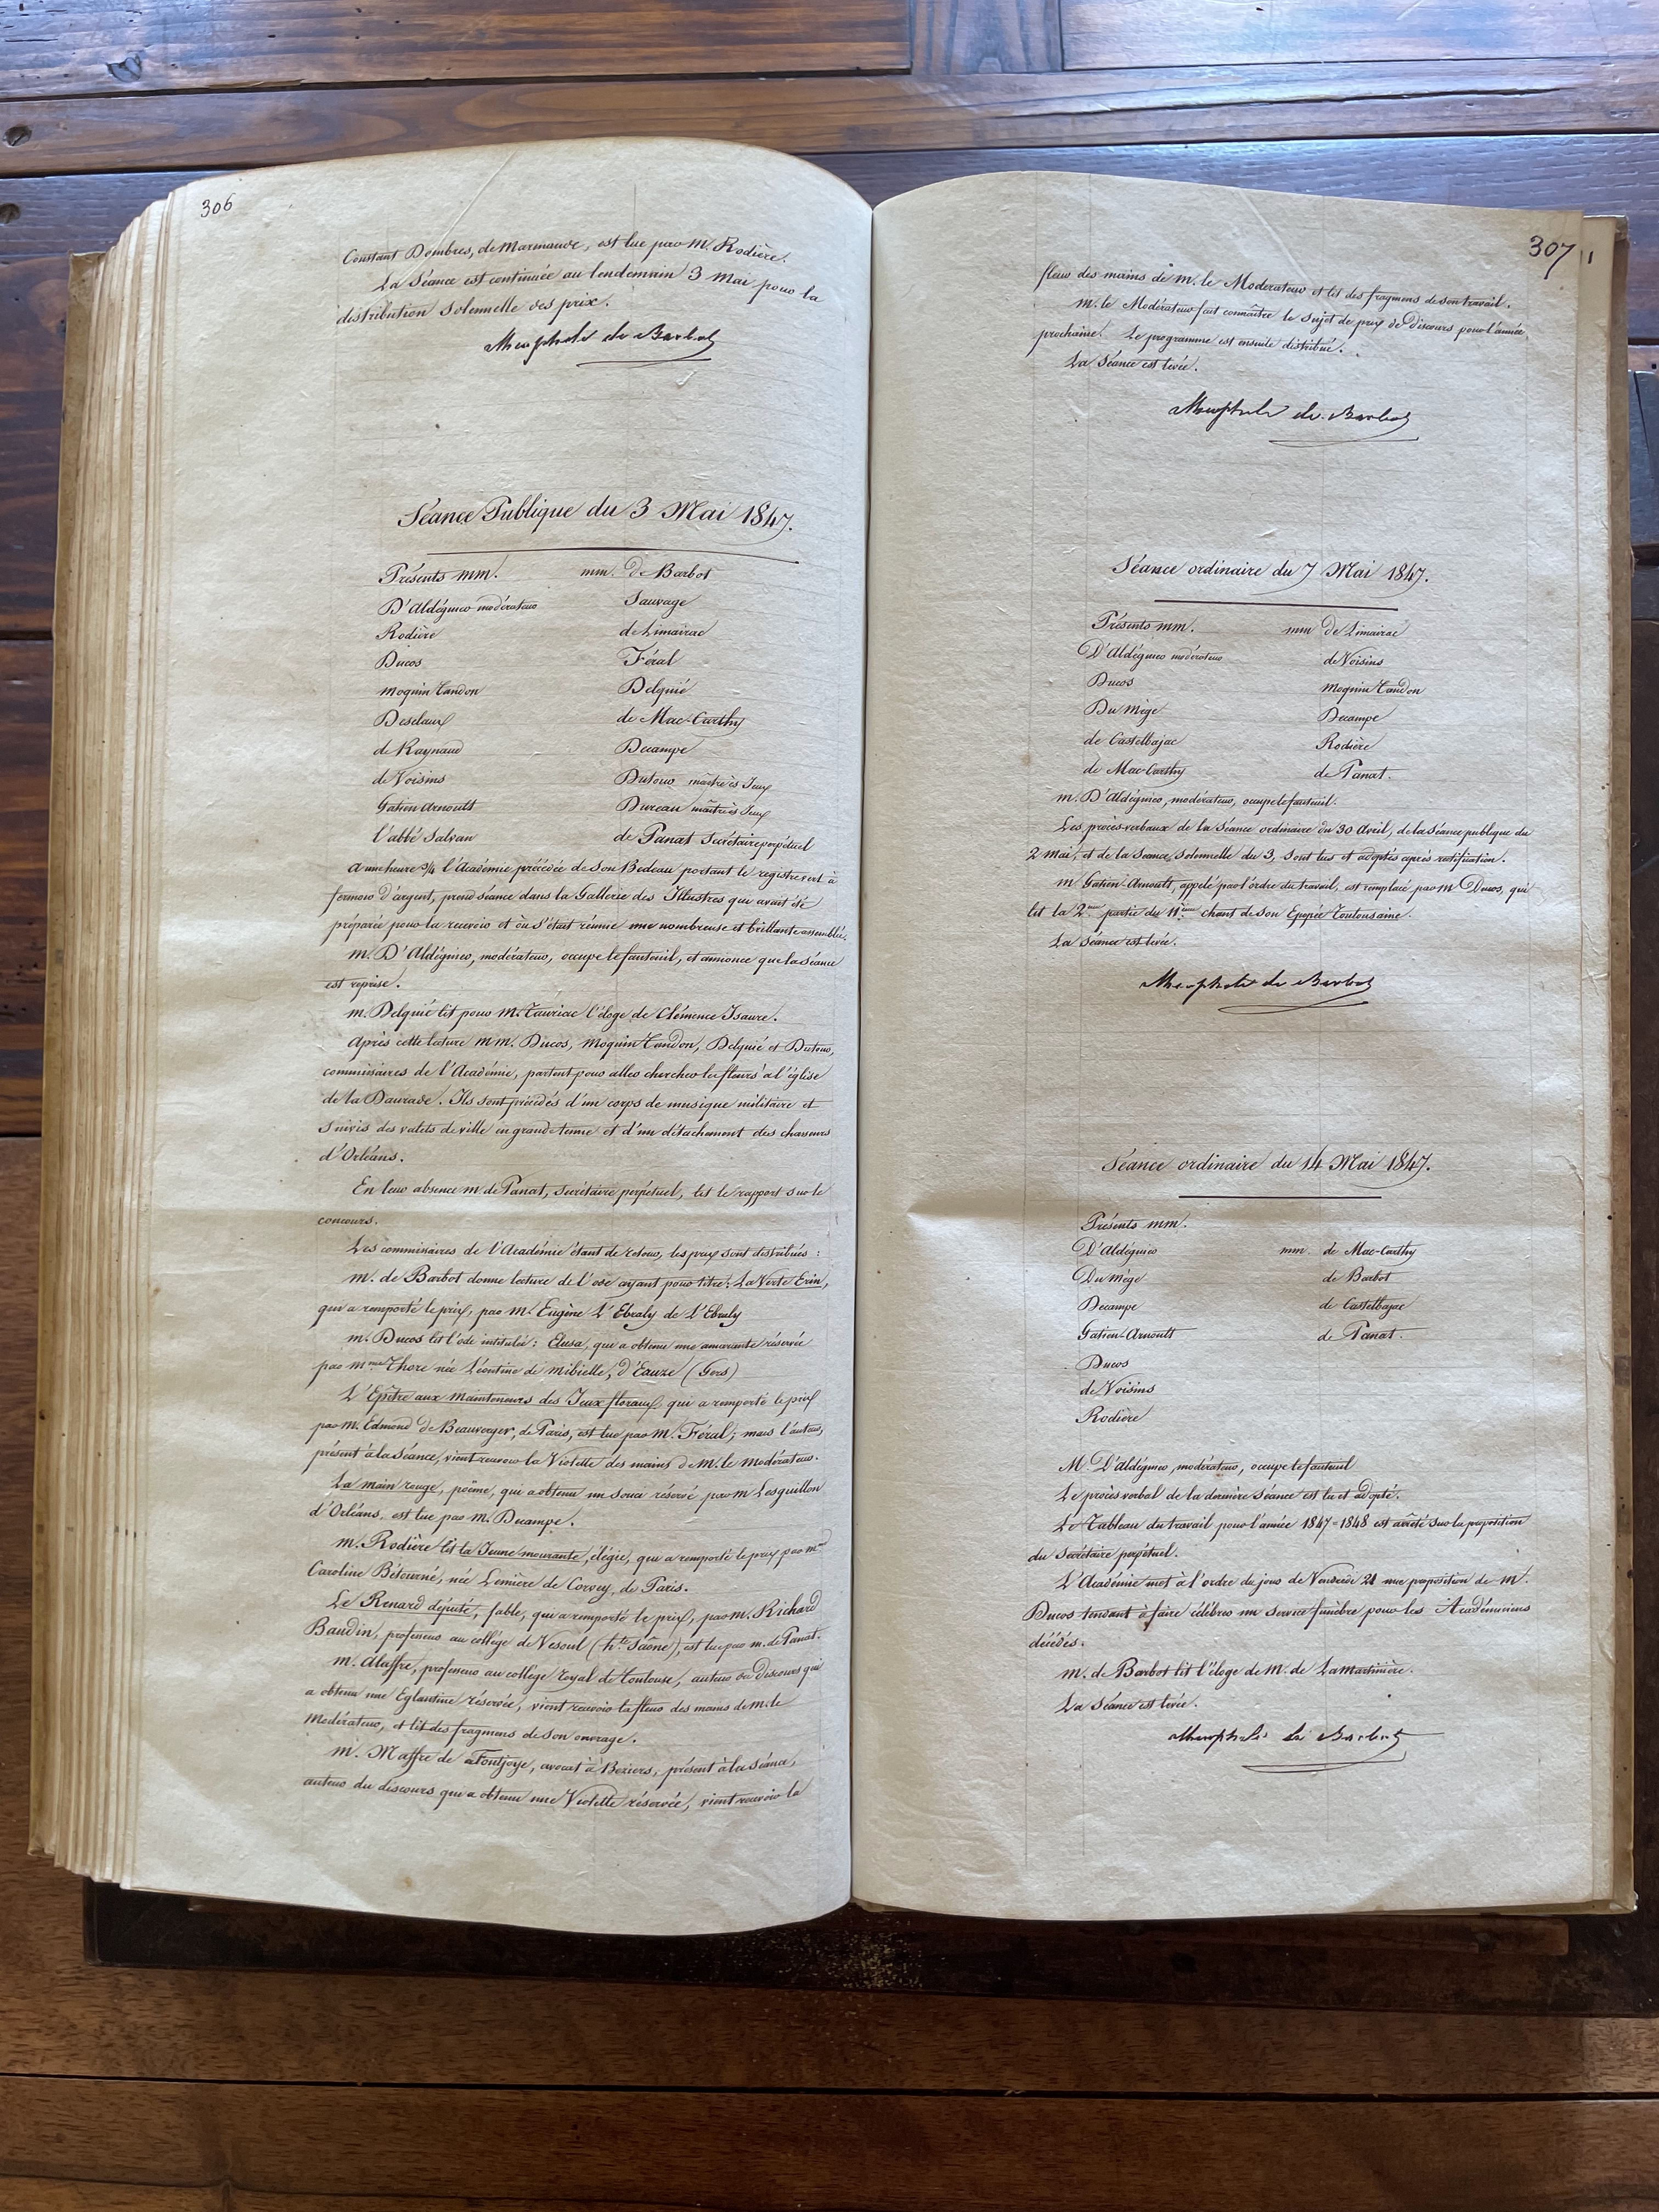 306
Constant Dombres, de Marmande, est lue par M. Rodière.
La Séance est continuée au lendemain 3 Mai pour la
distribution solennelle des prix.
de Barbot
Séance Publique du 3 Mai 1847.
Présents MM. mm. de Barbot
D'Aldéguier modérateur Sauvage
Rodière de Limairac
Ducos Féral
Moquin Tandon Delquié
Desclaux de Mac-Carthy
de Raynaud Decampe
de Voisins Dutour maître ès Jeux
Gatien Arnoult Dureau maître ès Jeux
l'abbé Salvan de Panat Secrétaire perpétuel
à une heure 3/4 l'Académie précédée de son Bedeau portant le registre vert à
fermoir d'argent, prend séance dans la Gallerie des Illustres qui avait été
préparée pour la recevoir et où s'était réunie une nombreuse et brillante assemblée.
m. D'Aldéguier, modérateur, occupe le fauteuil, et annonce que la séance
est reprise.
m. Delquié lit pour M. Tauriac l'éloge de Clémence Isaure.
Après cette lecture MM. Ducos, Moquin Tandon, Delquié et Dutour,
commissaires de l'Académie, partent pour aller chercher les fleurs à l'église
de la Daurade. Ils sont précédés d'un corps de musique militaire et
suivis des valets de ville en grande tenue et d'un détachement des chasseurs
d'Orléans.
En leur absence m. de Panat, secrétaire perpétuel, lit le rapport sur le
concours.
Les commissaires de l'Académie étant de retour, les prix sont distribués :
m. de Barbot donne lecture de l'ode ayant pour titre : La Verte Erin,
qui a remporté le prix, par M. Eugène L'Ebraly de L'Ebraly
m. Ducos lit l'ode intitulée : Elusa, qui a obtenu une amarante réservée
par Mme Thore née Léontine de Mibielle, d'Eauze (Gers)
L'Epître aux Mainteneurs des Jeux floraux qui a remporté le prix
par M. Edmond de Beauverger, de Paris, est lue par M. Féral ; mais l'auteur,
présent à la séance, vient recevoir la Violette des mains de M. le modérateur.
La main rouge, poëme, qui a obtenu un souci réservé par m Lesguillon
d'Orléans, est lue par M. Decampe.
m. Rodière lit la Jeune mourante, élégie, qui a remporté le prix par Mme
Caroline Bétourné, née Lemière de Corvey, de Paris.
Le Renard député, fable, qui a remporté le prix, par M. Richard
Baudin, professeur au collège de Vesoul (hte Saône), est lue par m. de Panat.
m. Alaffre, professeur au collège royal de Toulouse, auteur du discours qui
a obtenu une Eglantine réservée, vient recevoir la fleur des mains de m. le
Modérateur, et lit des fragmens de son ouvrage.
m. Maffre de Fontjoye, avocat à Beziers, présent à la séance,
auteur du discours qui a obtenu une Violette réservée, vient recevoir la
307
fleur des mains de M. le Modérateur et lit des fragmens de son travail.
m. le Modérateur fait connaître le sujet de prix de Discours pour l'année
prochaine. Le programme est ensuite distribué.
La Séance est levée.
de Barbot
Séance ordinaire du 7 Mai 1847.
Présents MM. mm de Limairac
D'Aldéguier modérateur de Voisins
Ducos Moquin Tandon
Du Mège Decampe
de Castelbajac Rodière
de Mac-Carthy de Panat.
m. D'Aldéguier, modérateur, occupe le fauteuil.
Les procès-verbaux de la Séance ordinaire du 30 Avril, de la séance publique du
2 mai, et de la séance solennelle du 3, sont lus et adoptés après rectification.
m Gatien-Arnoult, appelé par l'ordre du travail, est remplacé par M Ducos, qui
lit la 2me partie du 11ème chant de son Epopée Toulousaine.
La Séance est levée.
de Barbot
Séance ordinaire du 14 Mai 1847.
Présents MM.
D'Aldéguier mm. de Mac-Carthy
Du Mège de Barbot
Decampe de Castelbajac
Gatien-Arnoult de Panat.
Ducos
de Voisins
Rodière
M. D'Aldéguier, modérateur, occupe le fauteuil
Le procès verbal de la dernière séance est lu et adopté.
Le Tableau du travail pour l'année 1847=1848 est arrêté sur la proposition
du Secrétaire perpétuel.
L'Académie met à l'ordre du jour de Vendredi 21 une proposition de M.
Ducos tendant à faire célébrer un service funèbre pour les Académiciens
décédés.
m. de Barbot lit l'éloge de M. de Lamartinière.
La Séance est levée.
de Barbot